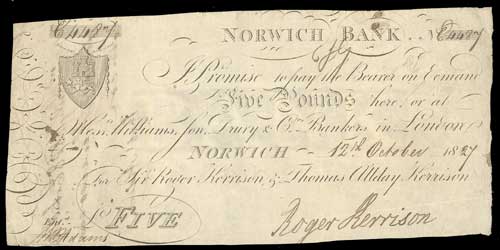 C4487
NORWICH BANK. No C4487
I Promise to pay the Bearer on Demand
Five Pounds here, or at
Messrs Williams, Son, Drury & Co. Bankers in London
NORWICH 12th October 1827
For Sir Roger Kerrison, & Thomas Allday Kerrison
£ FIVE
Entd.
Adams
Roger Kerrison